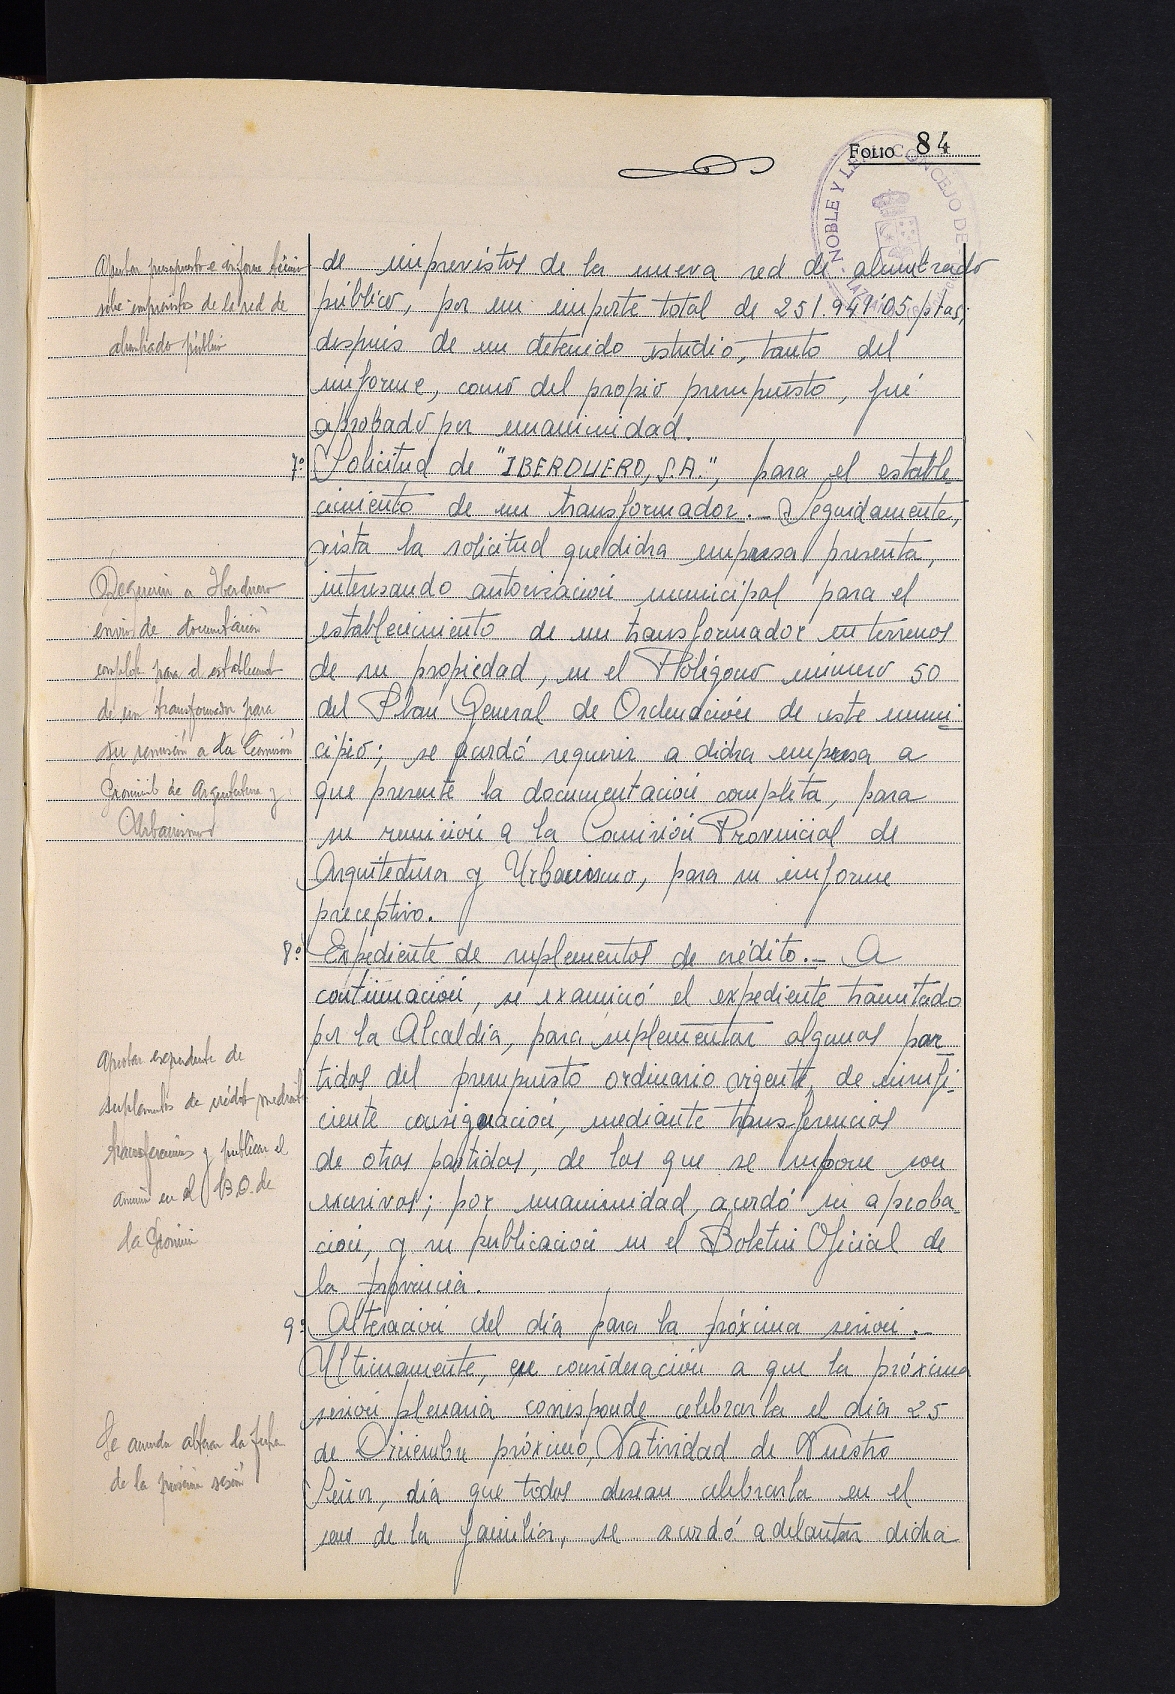 FOLIO 84
NOBLE Y LEAL CONCEJO DE
de imprevistos de la nueva red de alumbrado
público, por un importe total de 251.941'05 ptas;
después de un detenido estudio, tanto del
informe, como del propio presupuesto, fué
aprobado por unanimidad.
7º Solicitud de "IBERDUERO, S.A.", para el estable-
cimiento de un transformador.- Seguidamente,
vista la solicitud que dicha empresa presenta,
interesando autorización municipal para el
establecimiento de un transformador en terrenos
de su propiedad, en el Polígono número 50
del Plan General de Ordenación de este muni-
cipio; se acordó requerir a dicha empresa a
que presente la documentación completa, para
su remisión a la Comisión Provincial de
Arquitectura y Urbanismo, para su informe
preceptivo.
8º Expediente de suplementos de crédito.- A
continuación, se examinó el expediente tramitado
por la Alcaldía, para suplementar algunas par-
tidas del presupuesto ordinario vigente, de insufi-
ciente consignación, mediante transferencias
de otras partidas, de las que se supone son
excesivas; por unanimidad, acordó su aproba-
ción, y su publicación en el Boletín Oficial de
la provincia.
9º Alteración del día para la próxima sesión.-
Ultimamente, en consideración a que la próxima
sesión plenaria corresponde celebrarla el día 25
de Diciembre próximo, Natividad de Nuestro
Señor, día que todos desean celebrarla en el
seno de la familia, se acordó adelantar dicha
Aprobar presupuesto e informe técnico
sobre imprevistos de la red de
alumbrado público
Requerir a Iberduero
envio de documentación
completa para el establecimt
de un transformador para
su remisión a la Comisión
Provincial de Arquitectura y
Urbanismo
Aprobar expediente de
suplementos de crédito mediante
transferencias y publicar el
anuncio en el B.O. de
la Provincia
Se acuerda alterar la fecha
de la próxima sesión